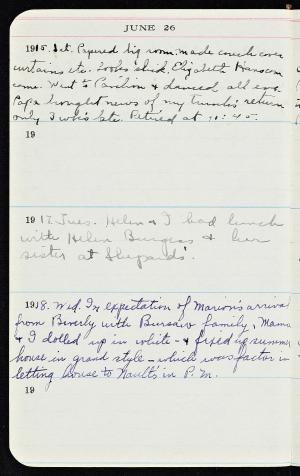 JUNE 26
1915. Sat. Papered big room, made couch cover
curtains etc. Looks slick, Elizabeth Hanscom
came. Went to Pavilion & danced all eve
Papa brought news of my trunk's return
only 3 wks late. Retired at 11:45.
19
1917. Tues. Helen & I had lunch
with Helen Burgess & her
sister at Shepards'.
1918. Wed. In expectation of Marion's arrival
from Beverly with Bursaw family, Mama
& I dolled up in white - & fixed up summer
house in grand style - which was factor in
letting house to Nault's in P.M.
19